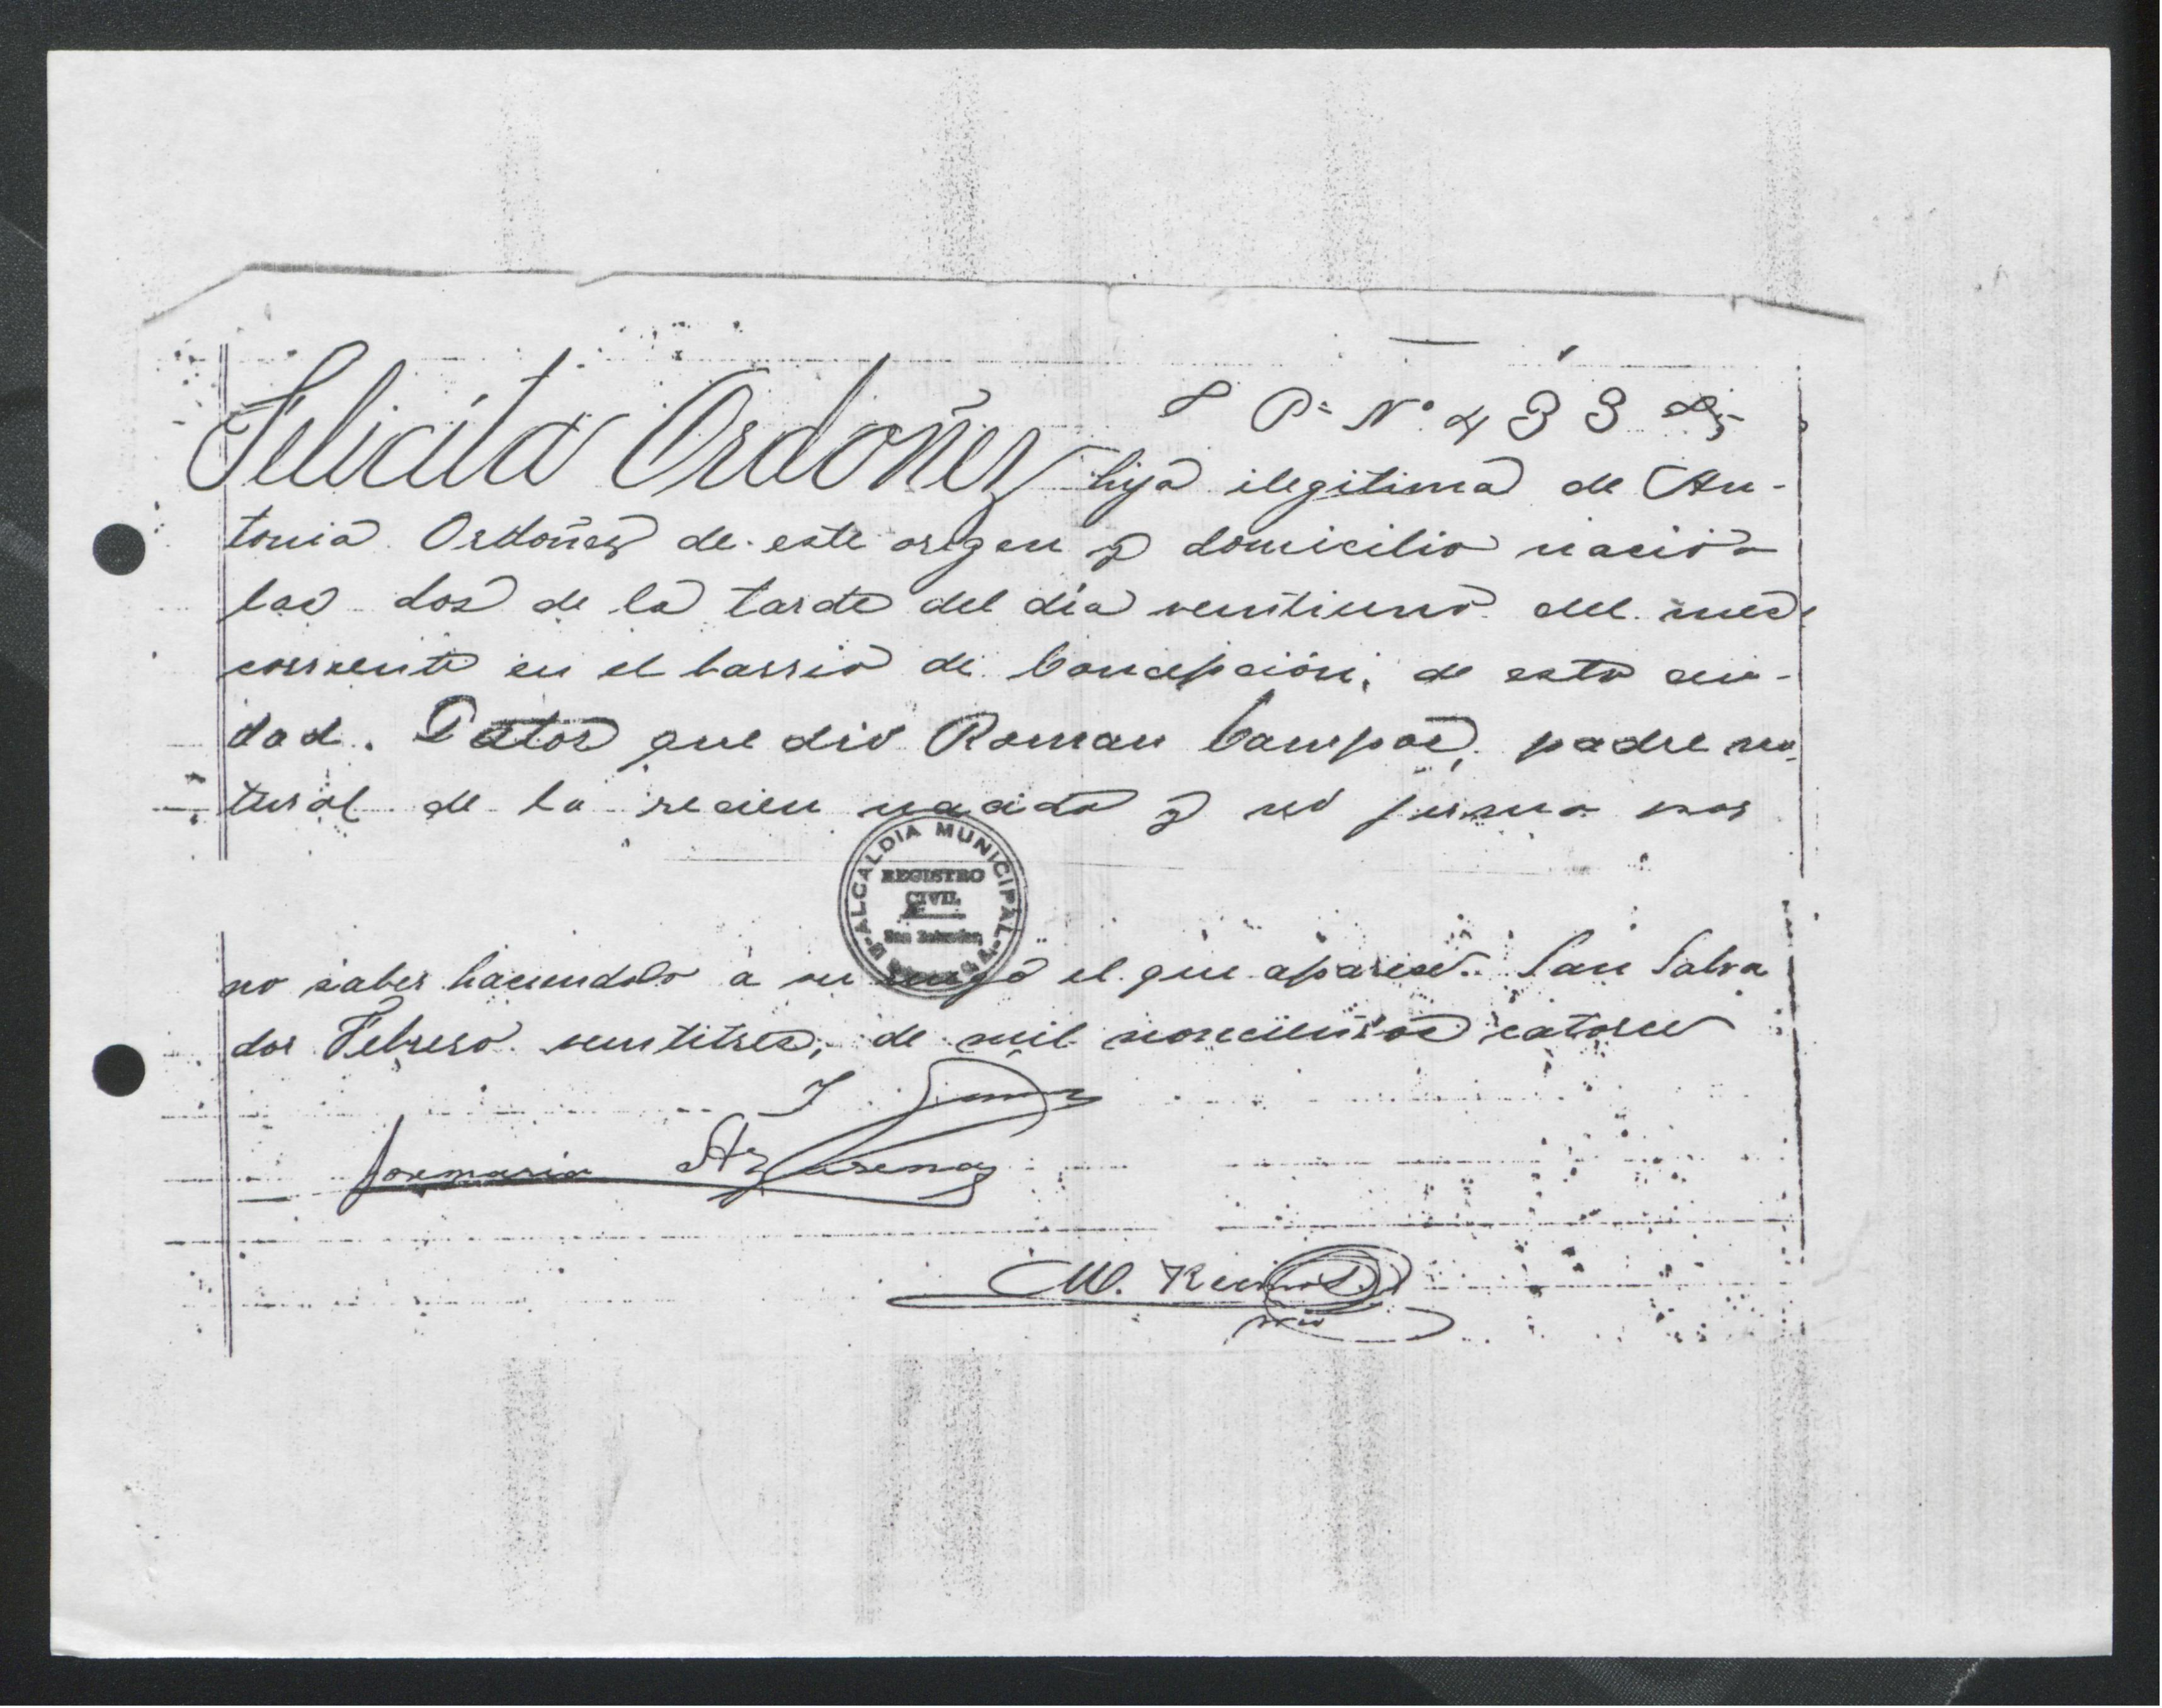 P= Nº 433
Felicita Ordoñez hija ilegitima de An-
tonia Ordoñez de este origen y domicilio nació a
las dos de la tarde del día ventiuno del mes
corriente en el barrio de Concepción, de esta ciu-
dad. Datos que dió Roman Campos, padre na-
tural de la recien nacida y no firma por
ALCALDIA MUNICIPAL
REGISTRO
CIVIL
San Salvador,
no saber haciendolo a su ruego el que aparece. San Salva
dor Febrero ventitres, de mil novecientos catorce
Josemaria
M.
srio